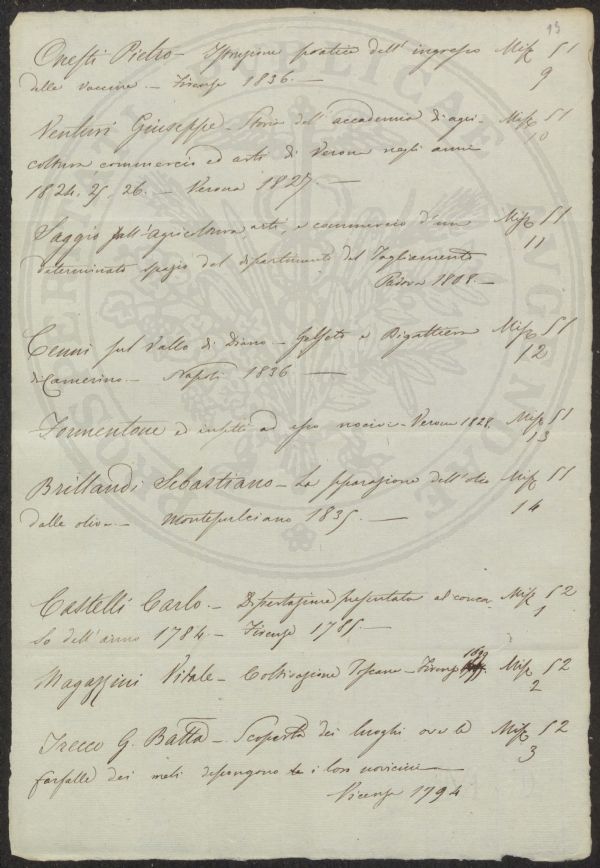 15
Onesti Pietro - Istruzione pratica dell' ingrasso Misc 51
delle vaccine - Firenze 1836. - 9
Venturi Giuseppe - Storia dell' accademia di agri- Misc 51
coltura commercio ed arti di Verona negli anni 10
1824. 25. 26. - Verona 1827. -
Saggio sull' agricoltura arti, e commercio d'un Misc 51
determinato spazio del dipartimento del Tagliamento 11
Padova 1808. -
Cenni sul Vallo di Diano - Gelseto e Bigattiera Misc 51
di Camerino - Napoli 1836 - 12
Formentone ed insetti ad esso nocivi - Verona 1828. Misc 51
13
Brillandi Sebastiano - La separazione dell' olio Misc 51
dalle olive - Montepulciano 1835. - 14
Castelli Carlo. - Dissertazione presentata al concor Misc 52
so dell' anno 1784 - Firenze 1785. - 1
Magazzini Vitale - Coltivazione Toscana - Firenze Misc 52
2
Trecco G. Batta - Scoperta dei luoghi ove le Misc 52
farfalle dei meli depongono i loro 3
Vicenza 1794